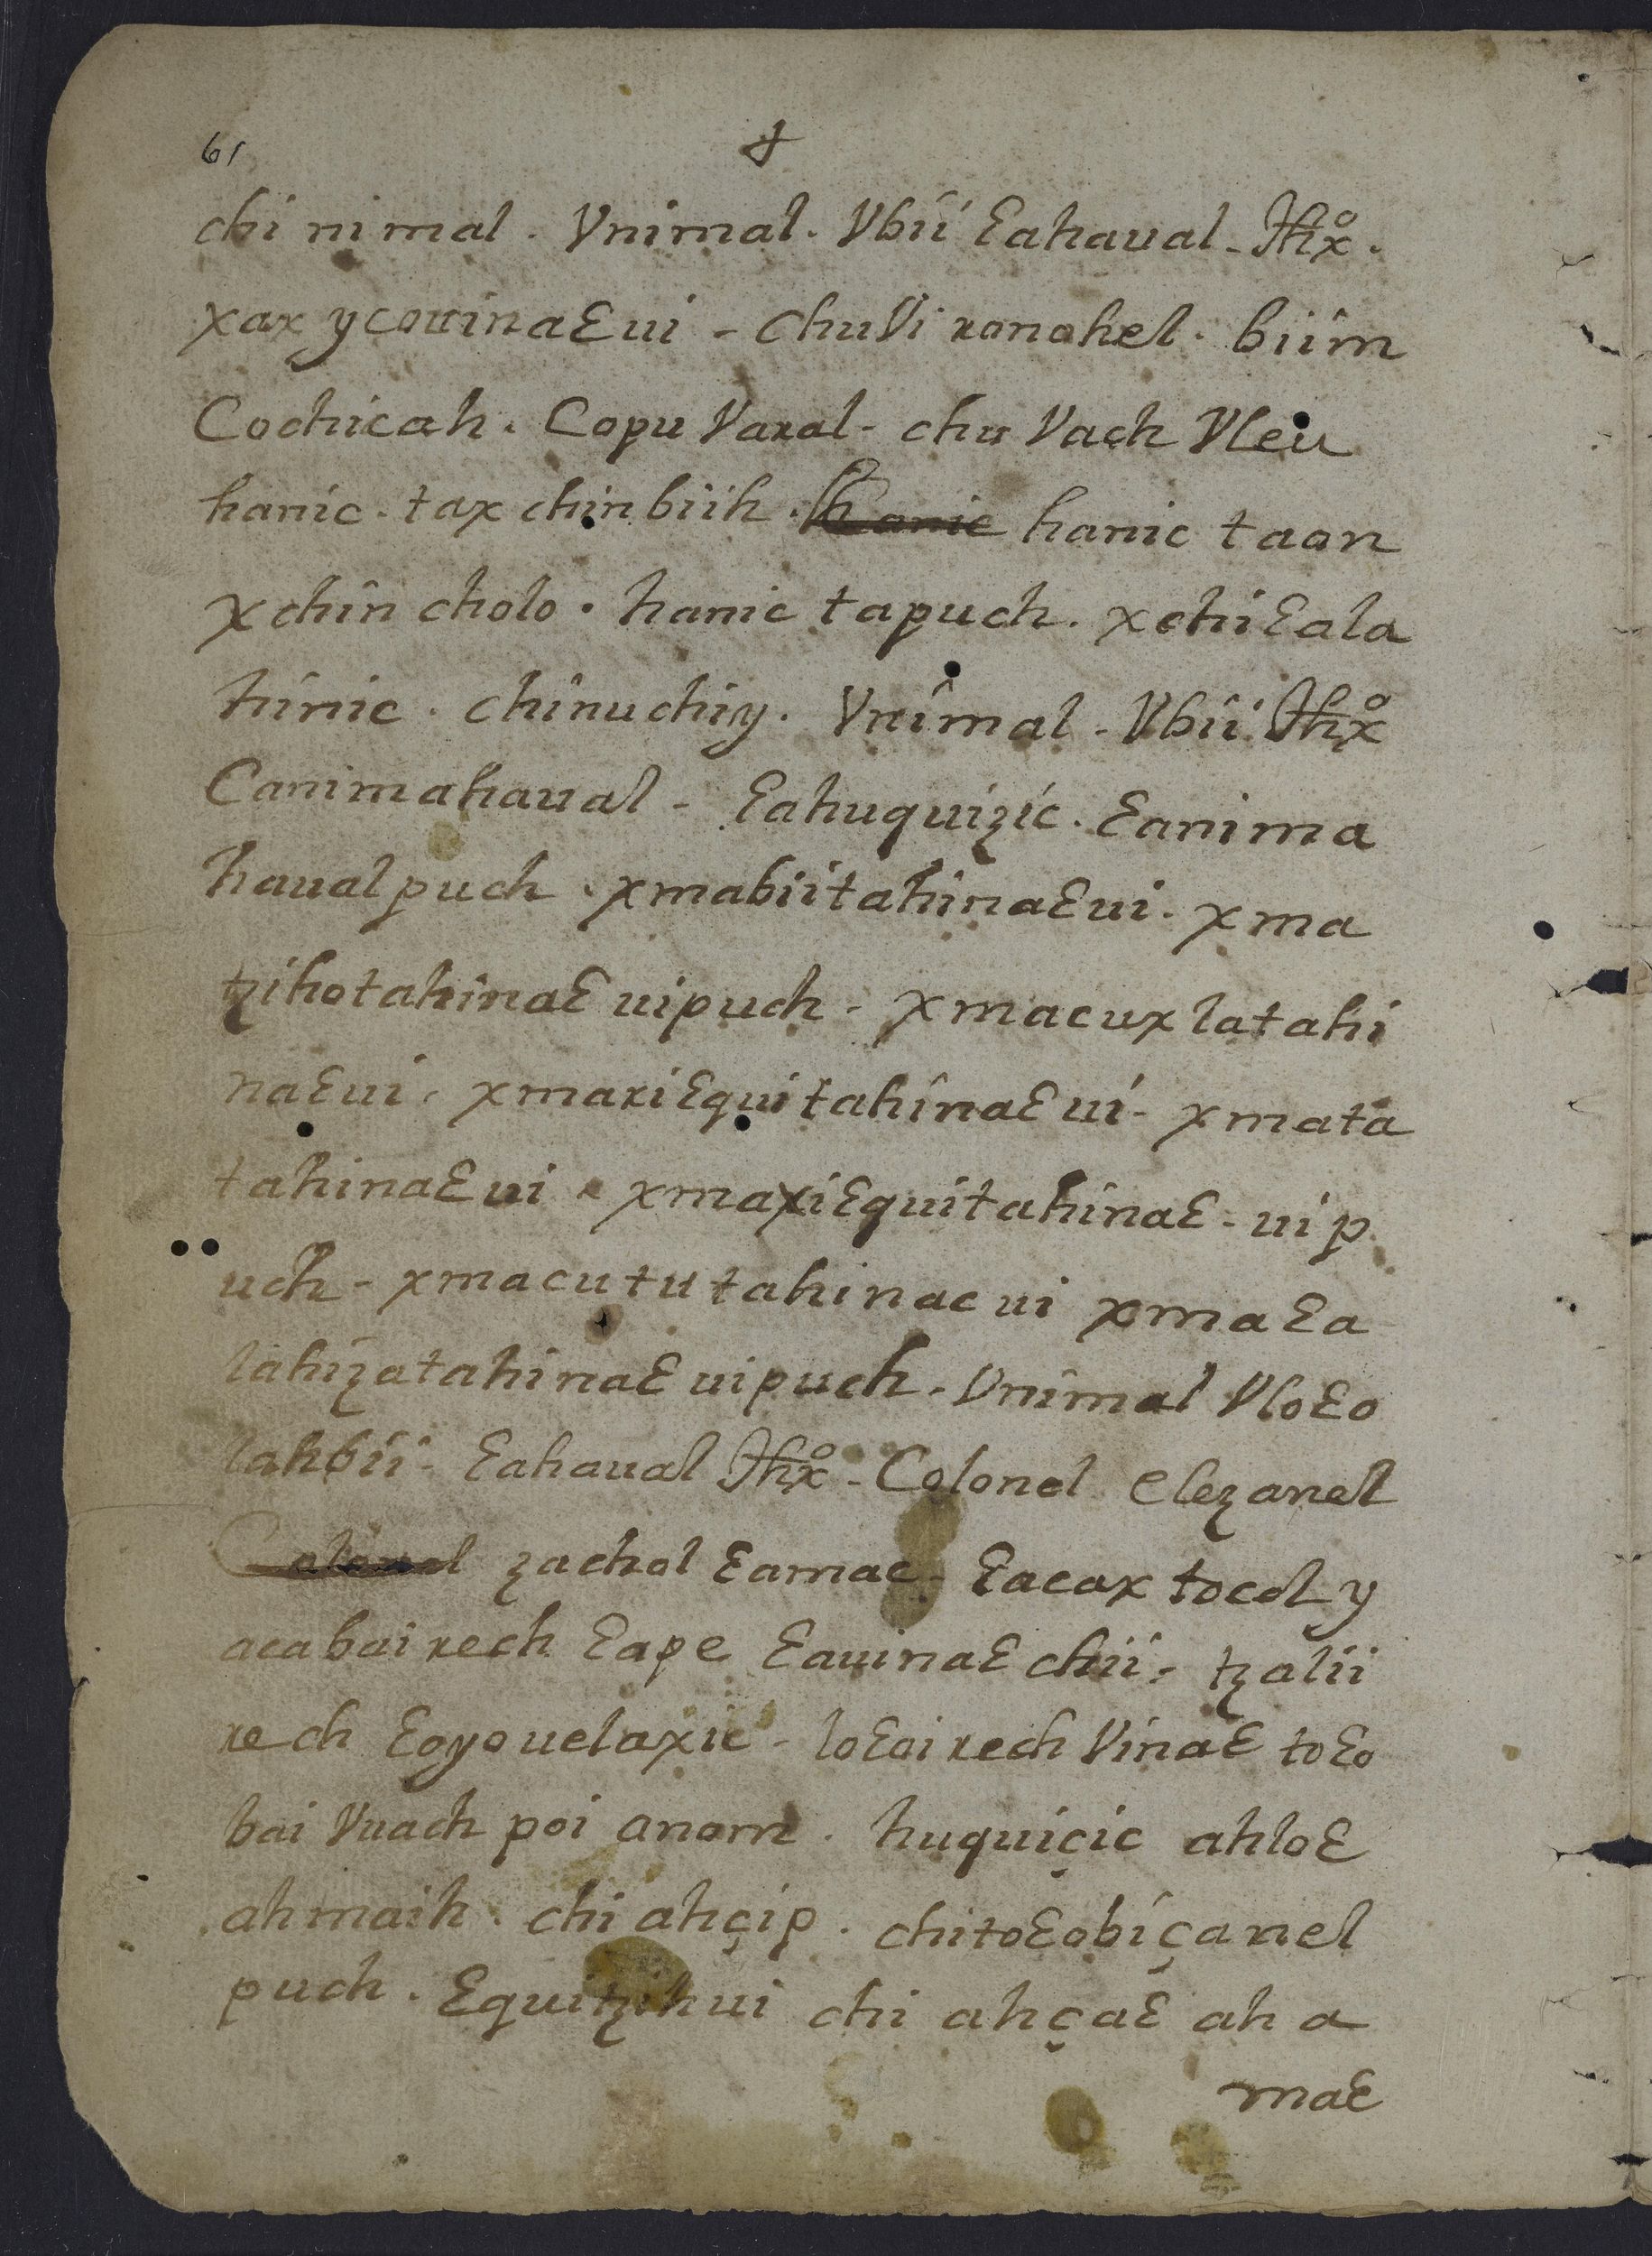 61 ✝
chi nimal. Vnimal. Vbíí Ɛahaual. Jħxº.
xax ycouinaƐui - chuVi ronohel. biim
Cochicah. Copu Varal - chu Vach Vleu
hanic. tax chin biih. hanic hanic taan
xchin cholo. hanic tapuch. xchiƐala
hinic. chinuchiy. Vnimal. Vbíí Jħxº
Canimahaual - Ɛahuquiʒic. Ɛanima
haual puch. xmabiitahinaƐui. xma
tʒihotahinaƐ uipuch - xmacuxlatahi
naƐui. xmariƐquitahinaƐuí - xmata
tahinaƐui xmaxiƐquitahinaƐ - ui p
uch - xmacututahinac ui xmaƐa
lahiʒatahinaƐ uipuch. Vnimal VloƐo
lahbíí - Ɛahaual Jħxº - Colonel Cleʒanel
Colonel ʒachol Ɛamac. Ɛacax tocol y
acabai rech Ɛape ƐauinaƐ chíí - tʒalii
rech Ɛoyouelaxic - loƐoi rech VinaƐ toƐo
bai Vuach poi anom. huquiçic ahloƐ
ahmaih. chi ahçip. chitoƐobíçanel
puch. Ɛquitʒihui chi ahçaƐ ah a
maƐ